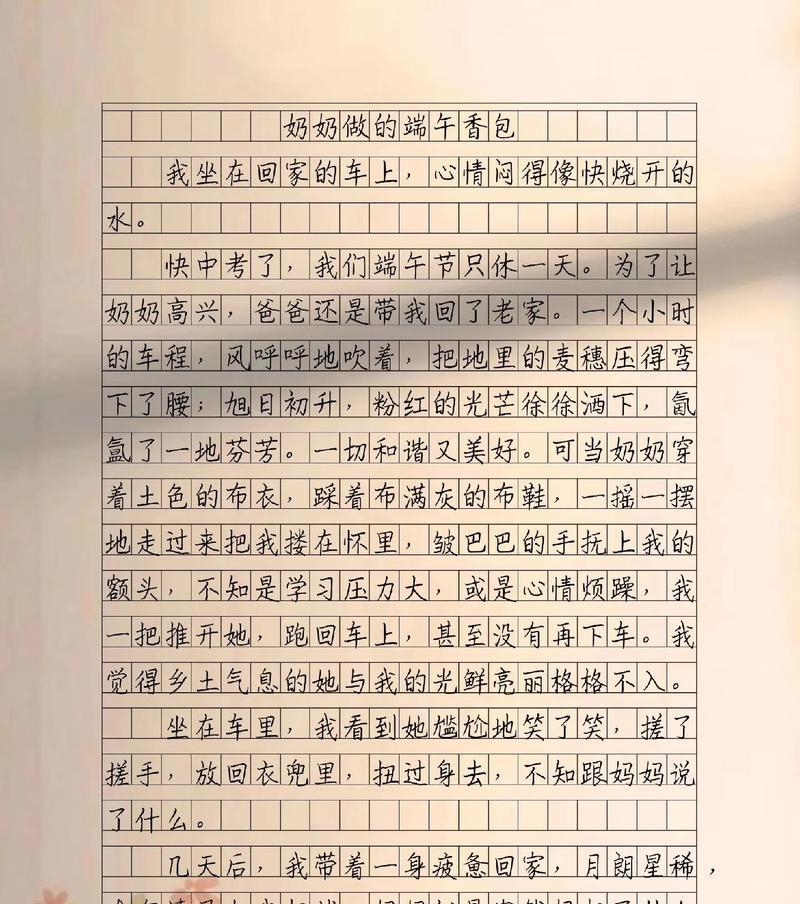 奶奶做的端午香包
我坐在回家的车上，心情闷得像快烧开的
水。
快中考了，我们端午节只休一天。为了让
奶奶高兴，爸爸还是带我回了老家。一个小时
的车程，风呼呼地吹着，把地里的麦穗压得弯
下了腰；旭日初升，粉红的光芒徐徐洒下，氤
氲了一地芬芳。一切和谐又美好。可当奶奶穿
着土色的布衣，踩着布满灰的布鞋，一摇一摆
地走过来把我搂在怀里，皱巴巴的手抚上我的
额头，不知是学习压力大，或是心情烦躁，我
一把推开她，跑回车上，甚至没有再下车。我
觉得乡土气息的她与我的光鲜亮丽格格不入。
坐在车里，我看到她尴尬地笑了笑，搓了
搓手，放回衣兜里，扭过身去，不知跟妈妈说
了什么。
几天后，我带着一身疲惫回家，月朗星稀，